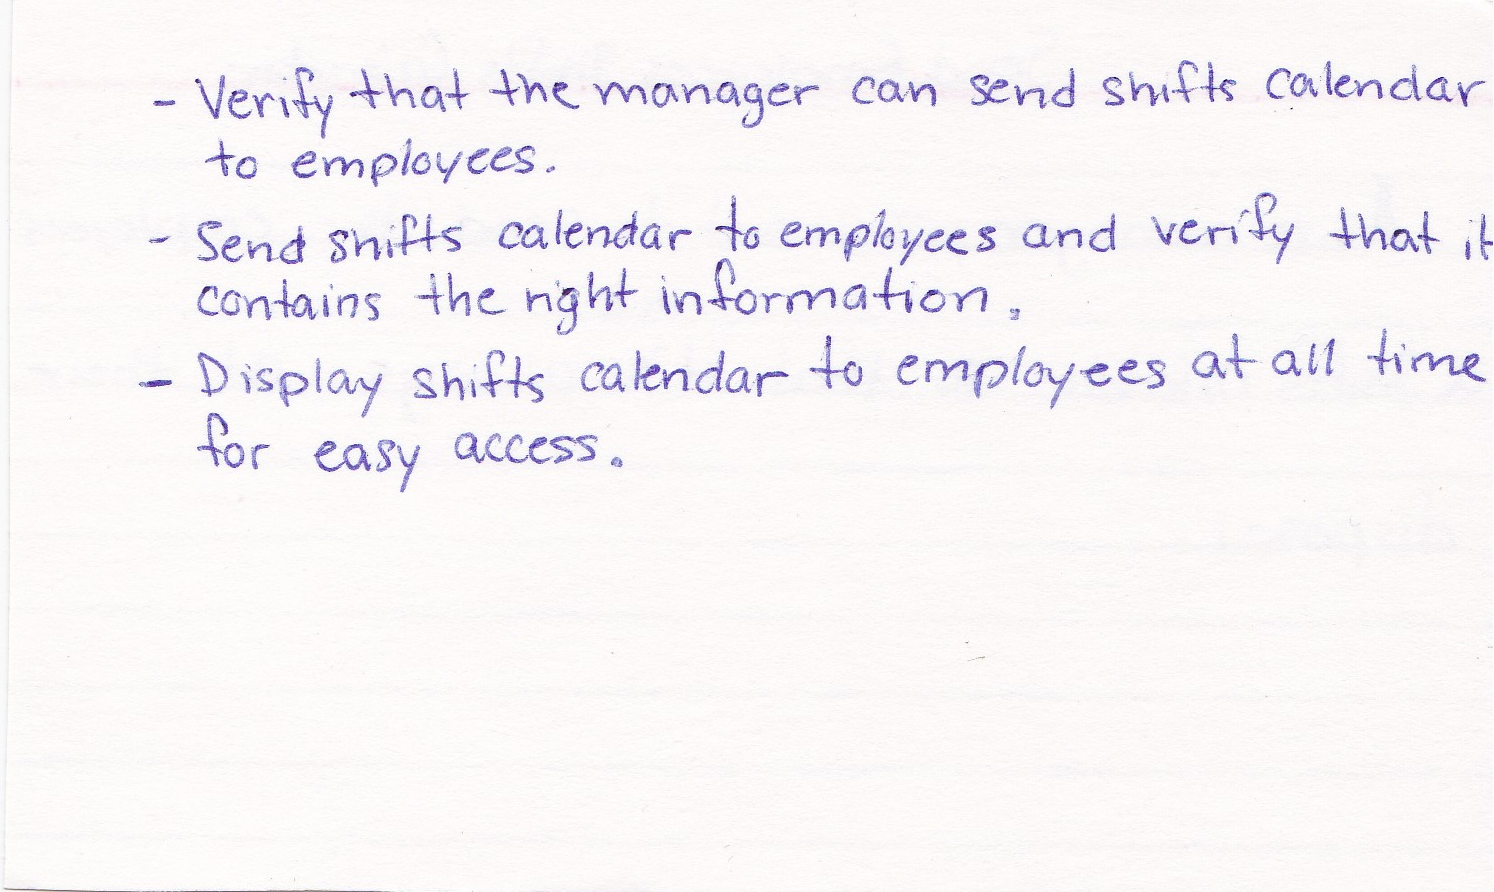 - Verify that the manager can send shifts calendar
to employees.
- Send shifts calendar to employees and verify that it
contains the right information.
- Display shifts calendar to employees at all time
for easy access.